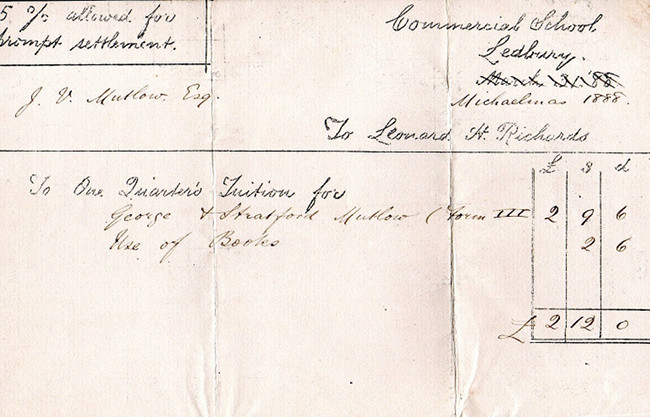 5 % allowed for
prompt settlement.
Commercial School
Ledbury.
March 31 '88
Michaelmas 1888.
J. V. Mutlow. Esq.
To Leonard H. Richards
£ s d
To One Quarter's Tuition for
George & Stratford Mutlow (Form III 2 9 6
Use of Books 2 6
£ 2 12 0